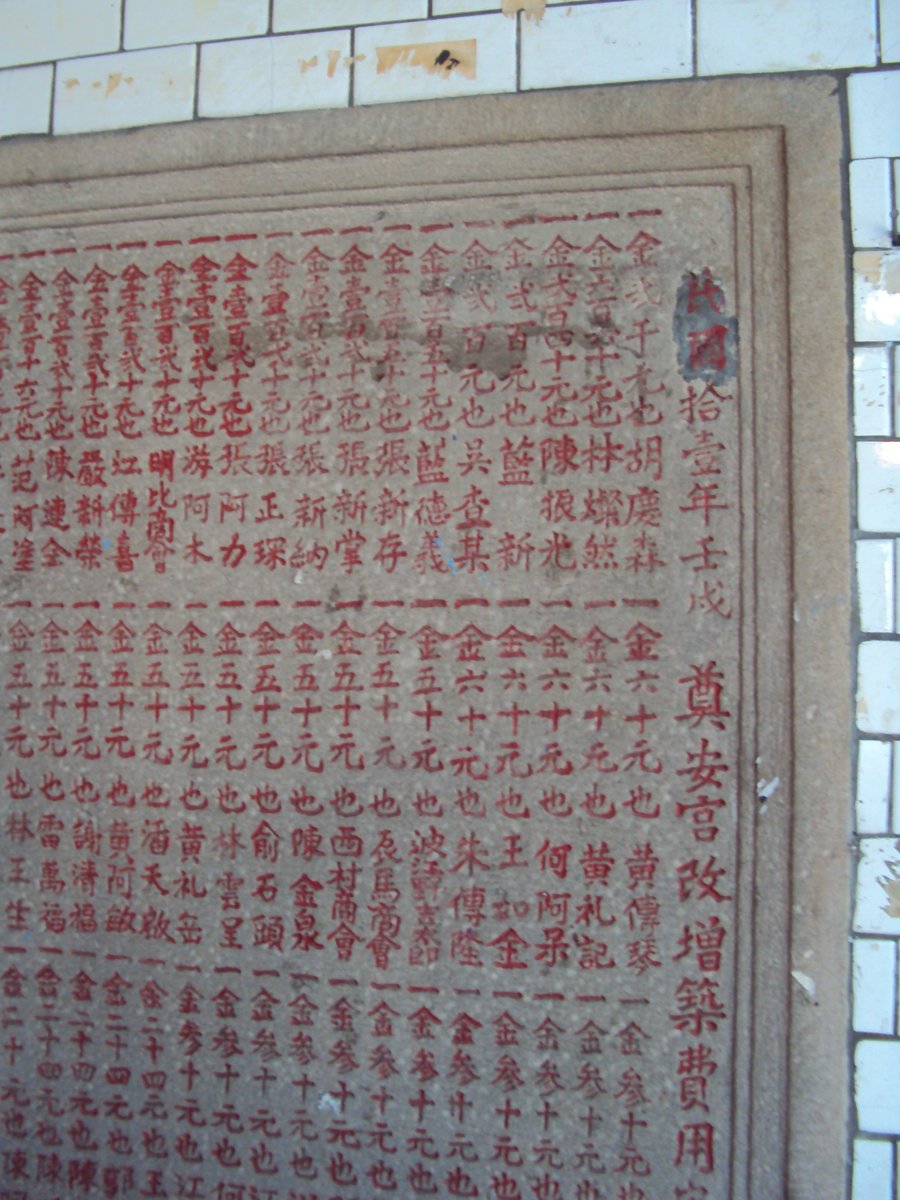 民國拾壹年壬戍 奠安宮改增築費用
一金弍千元也胡慶森
一金六十元也林燦然
一金弍百四十元也陳振光
一金弍百元也藍 新
一金弍百元也吳查某
一金壹百五十元也藍德義
一金壹百五十元也張新存
一金壹百弍十元也張新掌
一金壹百弍十元也張新納
一金壹百弍十元也張正琛
一金壹百弍十元也張阿力
一金壹百弍十元也游阿木
一金壹百弍十元也明比商會
一金壹百弍十元也江傳喜
一金壹百弍十元也嚴新榮
一金壹百弍十元也陳連全
一金壹百十六元也范阿塗
一金六十元也黃傳琴
一金六十元也黃礼記
一金六十元也何阿呆
一金六十元也王如金
一金六十元也朱傳隆
一金五十元也
一金五十元也辰馬商會
一金五十元也西村商會
一金五十元也陳金泉
一金五十元也俞石頭
一金五十元也林雲呈
一金五十元也黃礼岳
一金五十元也潘天啟
一金五十元也黃阿敏
一金五十元也謝濤福
一金五十元也雷萬福
一金五十元也林王生
一金參十元也
一金參十元也
一金參十元也
一金參十元也
一金參十元也
一金參十元也
一金參十元也
一金參十元也
一金參十元也
一金參十元也江
一金參十元也何
一金參十元也江
一金二十四元也王
一金二十四元也鄭
一金二十四元也陳
一金二十四元也陳
一金二十元也陳